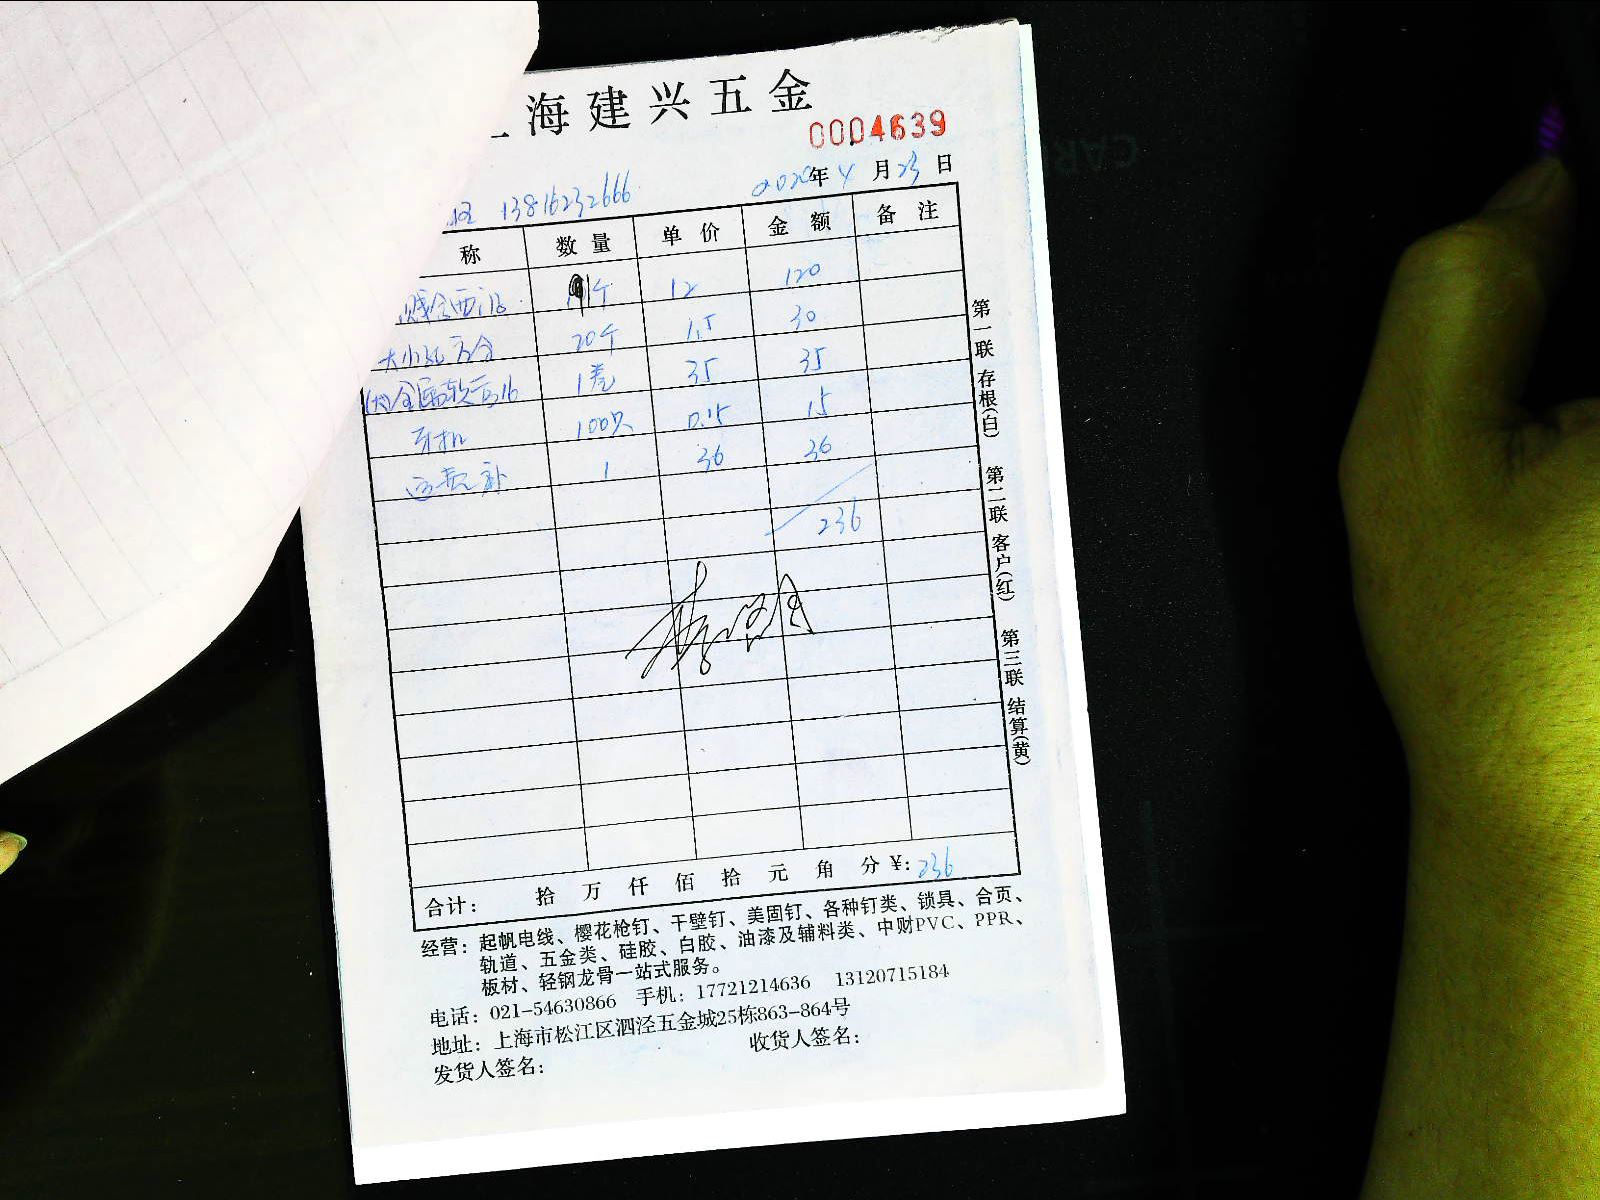 海建兴五金
0004639
13816232666 2020年4月23日
称 数量 单价 金额 备注
个 12 120
20个 1.5 30
金属软管16 1卷 35 35
100只 0.15 15
运费补 1 36 36
236
合计: 拾 万 仟 佰 拾 元 角 分 ¥: 236
经营: 起帆电线、樱花枪钉、干壁钉、美固钉、各种钉类、锁具、合页、
轨道、五金类、硅胶、白胶、油漆及辅料类、中财PVC、PPR、
板材、轻钢龙骨一站式服务。
电话: 021-54630866 手机: 17721214636 13120715184
地址: 上海市松江区泗泾五金城25栋863-864号
发货人签名: 收货人签名:
第一联 存根(白)
第二联 客户(红)
第三联 结算(黄)